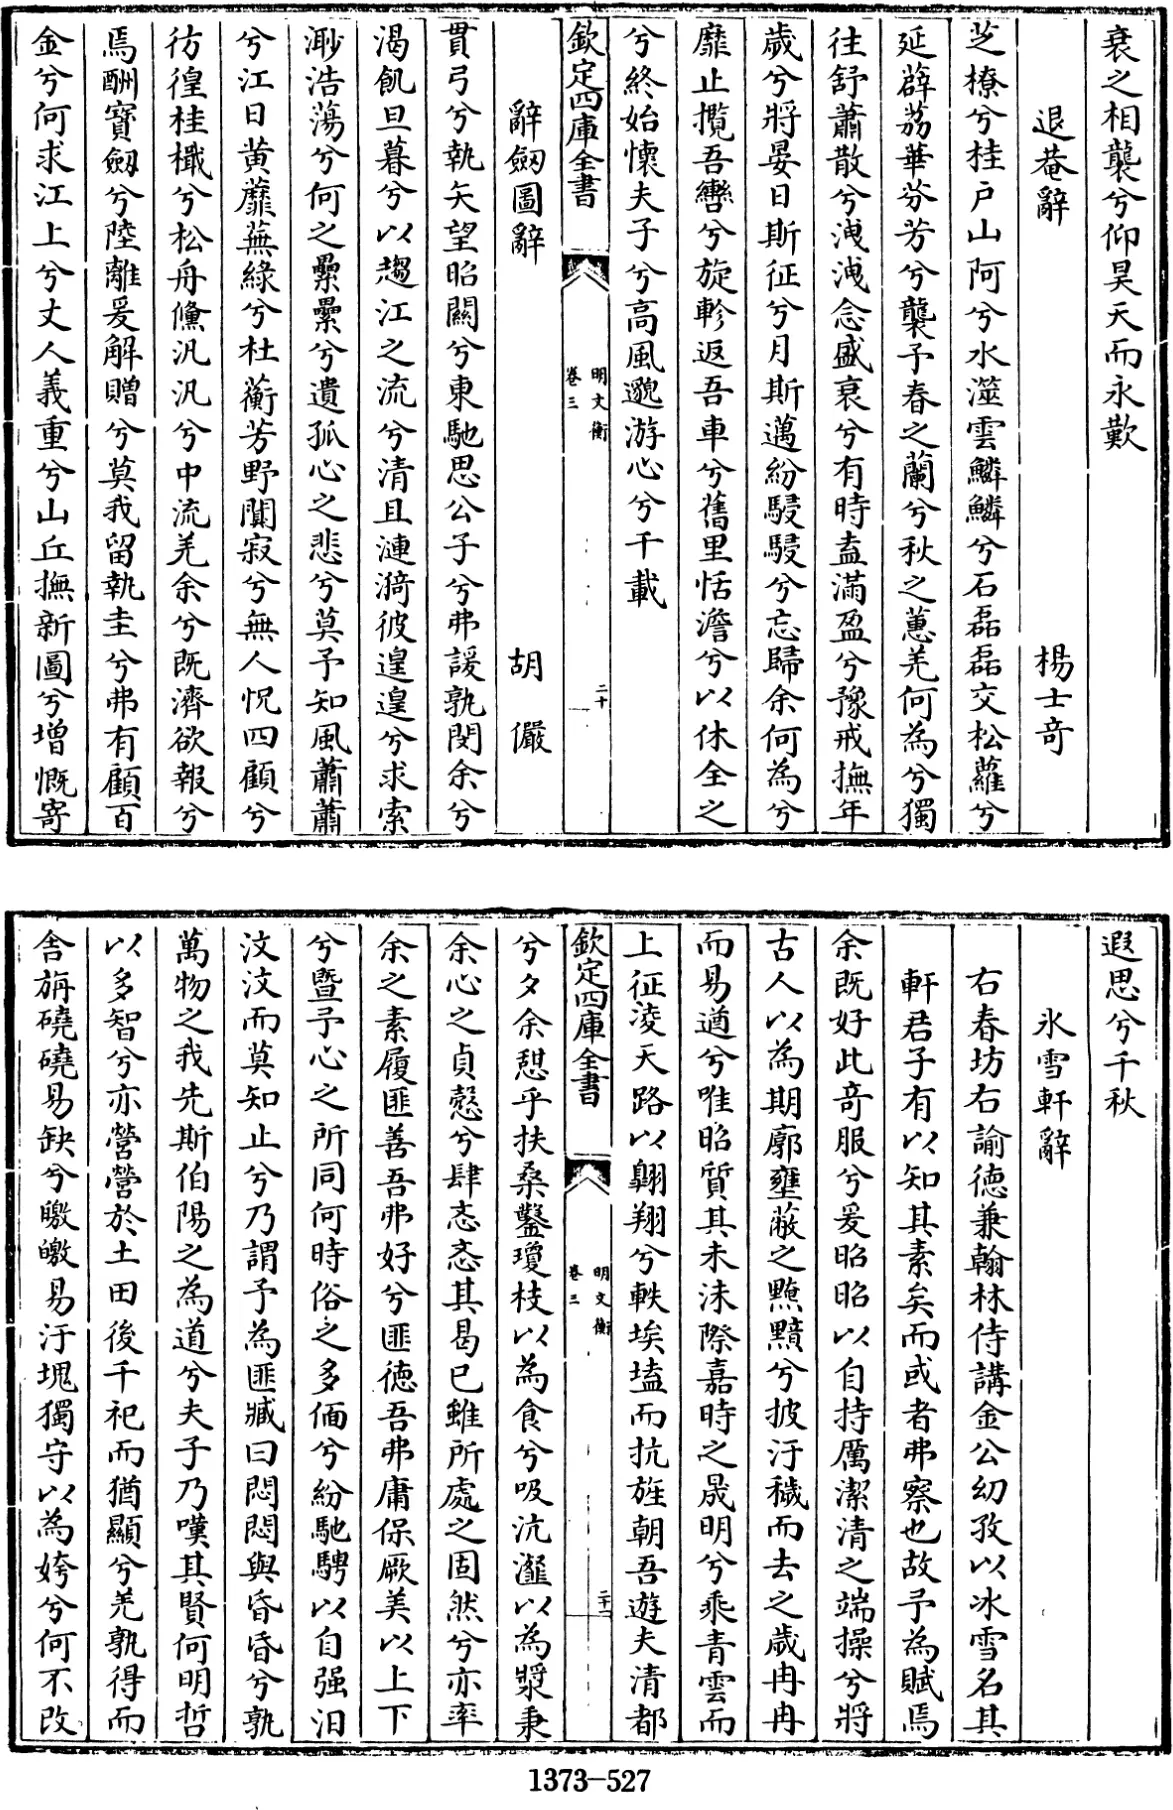 衰之相襲兮仰昊天而永歎
退菴辭 楊士奇
芝橑兮桂戶山阿兮水澨雲鱗鱗兮石磊磊交松蘿兮
延薜荔華芬芳兮襲予春之蘭兮秋之蕙羌何為兮獨
往舒蕭散兮洩洩念盛衰兮有時盍滿盈兮豫戒撫年
歲兮將晏日斯征兮月斯邁紛駸駸兮忘歸余何為兮
靡止攬吾轡兮旋軫返吾車兮舊里恬澹兮以休全之
兮終始懷夫子兮高風邈游心兮千載
欽定四庫全書 明文衡 卷三 二十
辭劒圖辭 胡儼
貫弓兮執矢望昭關兮東馳思公子兮弗諼孰閔余兮
渴飢旦暮兮以趨江之流兮清且漣漪彼遑遑兮求索
渺浩蕩兮何之纍纍兮遺孤心之悲兮莫予知風蕭蕭
兮江日黃蘼蕪綠兮杜蘅芳野闃寂兮無人怳四顧兮
彷徨桂檝兮松舟儵汎汎兮中流羌余兮既濟欲報兮
焉酬寶劒兮陸離爰解贈兮莫我留執圭兮弗有顧百
金兮何求江上兮丈人義重兮山丘撫新圖兮增慨寄
遐思兮千秋
氷雪軒辭
右春坊右諭德兼翰林侍講金公幼孜以冰雪名其
軒君子有以知其素矣而或者弗察也故予為賦焉
余既好此奇服兮爰昭昭以自持厲潔清之端操兮將
古人以為期廓壅蔽之黤黯兮披汙穢而去之歲冉冉
而易遒兮唯昭質其未沬際嘉時之晟明兮乘青雲而
上征淩天路以翺翔兮軼埃壒而抗旌朝吾遊夫清都
欽定四庫全書 明文衡 卷三 二十一
兮夕余憇乎扶桑鑿瓊枝以為食兮吸沆瀣以為漿秉
余心之貞慤兮肆忞忞其曷已雖所處之固然兮亦率
余之素履匪善吾弗好兮匪德吾弗庸保厥美以上下
兮暨予心之所同何時俗之多偭兮紛馳騁以自强汩
汶汶而莫知止兮乃謂予為匪臧曰悶悶與昏昏兮孰
萬物之我先斯伯陽之為道兮夫子乃嘆其賢何明哲
以多智兮亦營營於土田後千祀而猶顯兮羌孰得而
舍旃磽磽易缺兮皦皦易汙塊獨守以為姱兮何不改
1373-527